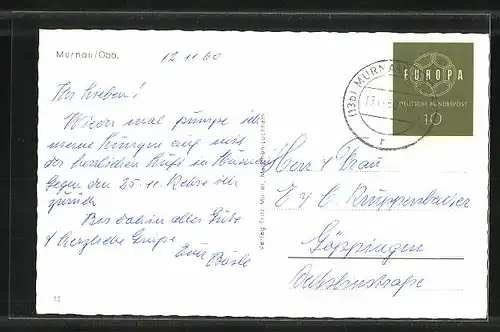 Murnau/Obb.
12 11 60
Ihr Lieben!
Wieder mal pumpe ich
meine Lungen auf mit
der herrlichen Luft in Murnau
Gegen den 25. 11. kehre ich
zurück
Bis dahin alles Gute
& herzliche Grüße
Eure
Bärle
12
Verlag Fritz Müller,
(13b) MURNAU
EUROPA
DEUTSCHE BUNDESPOST
10
Herr & Frau
E & C. Kruppenbacher
Göppingen